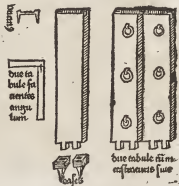 due ta
bule fa
cientes
angu
lum
bases
due tabule cū in
castraturis suis